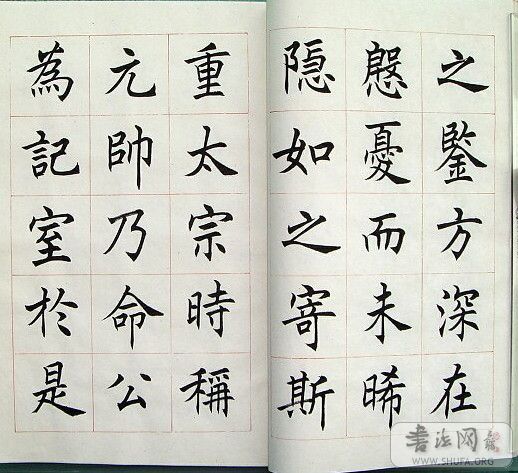 之鑒方深在
慇憂而未晞
隱如之寄斯
重太宗時稱
元帥乃命公
為記室於是
書法网
WWW.SHUFA.ORG